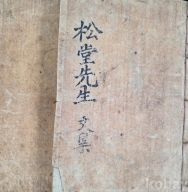 松堂先生文集